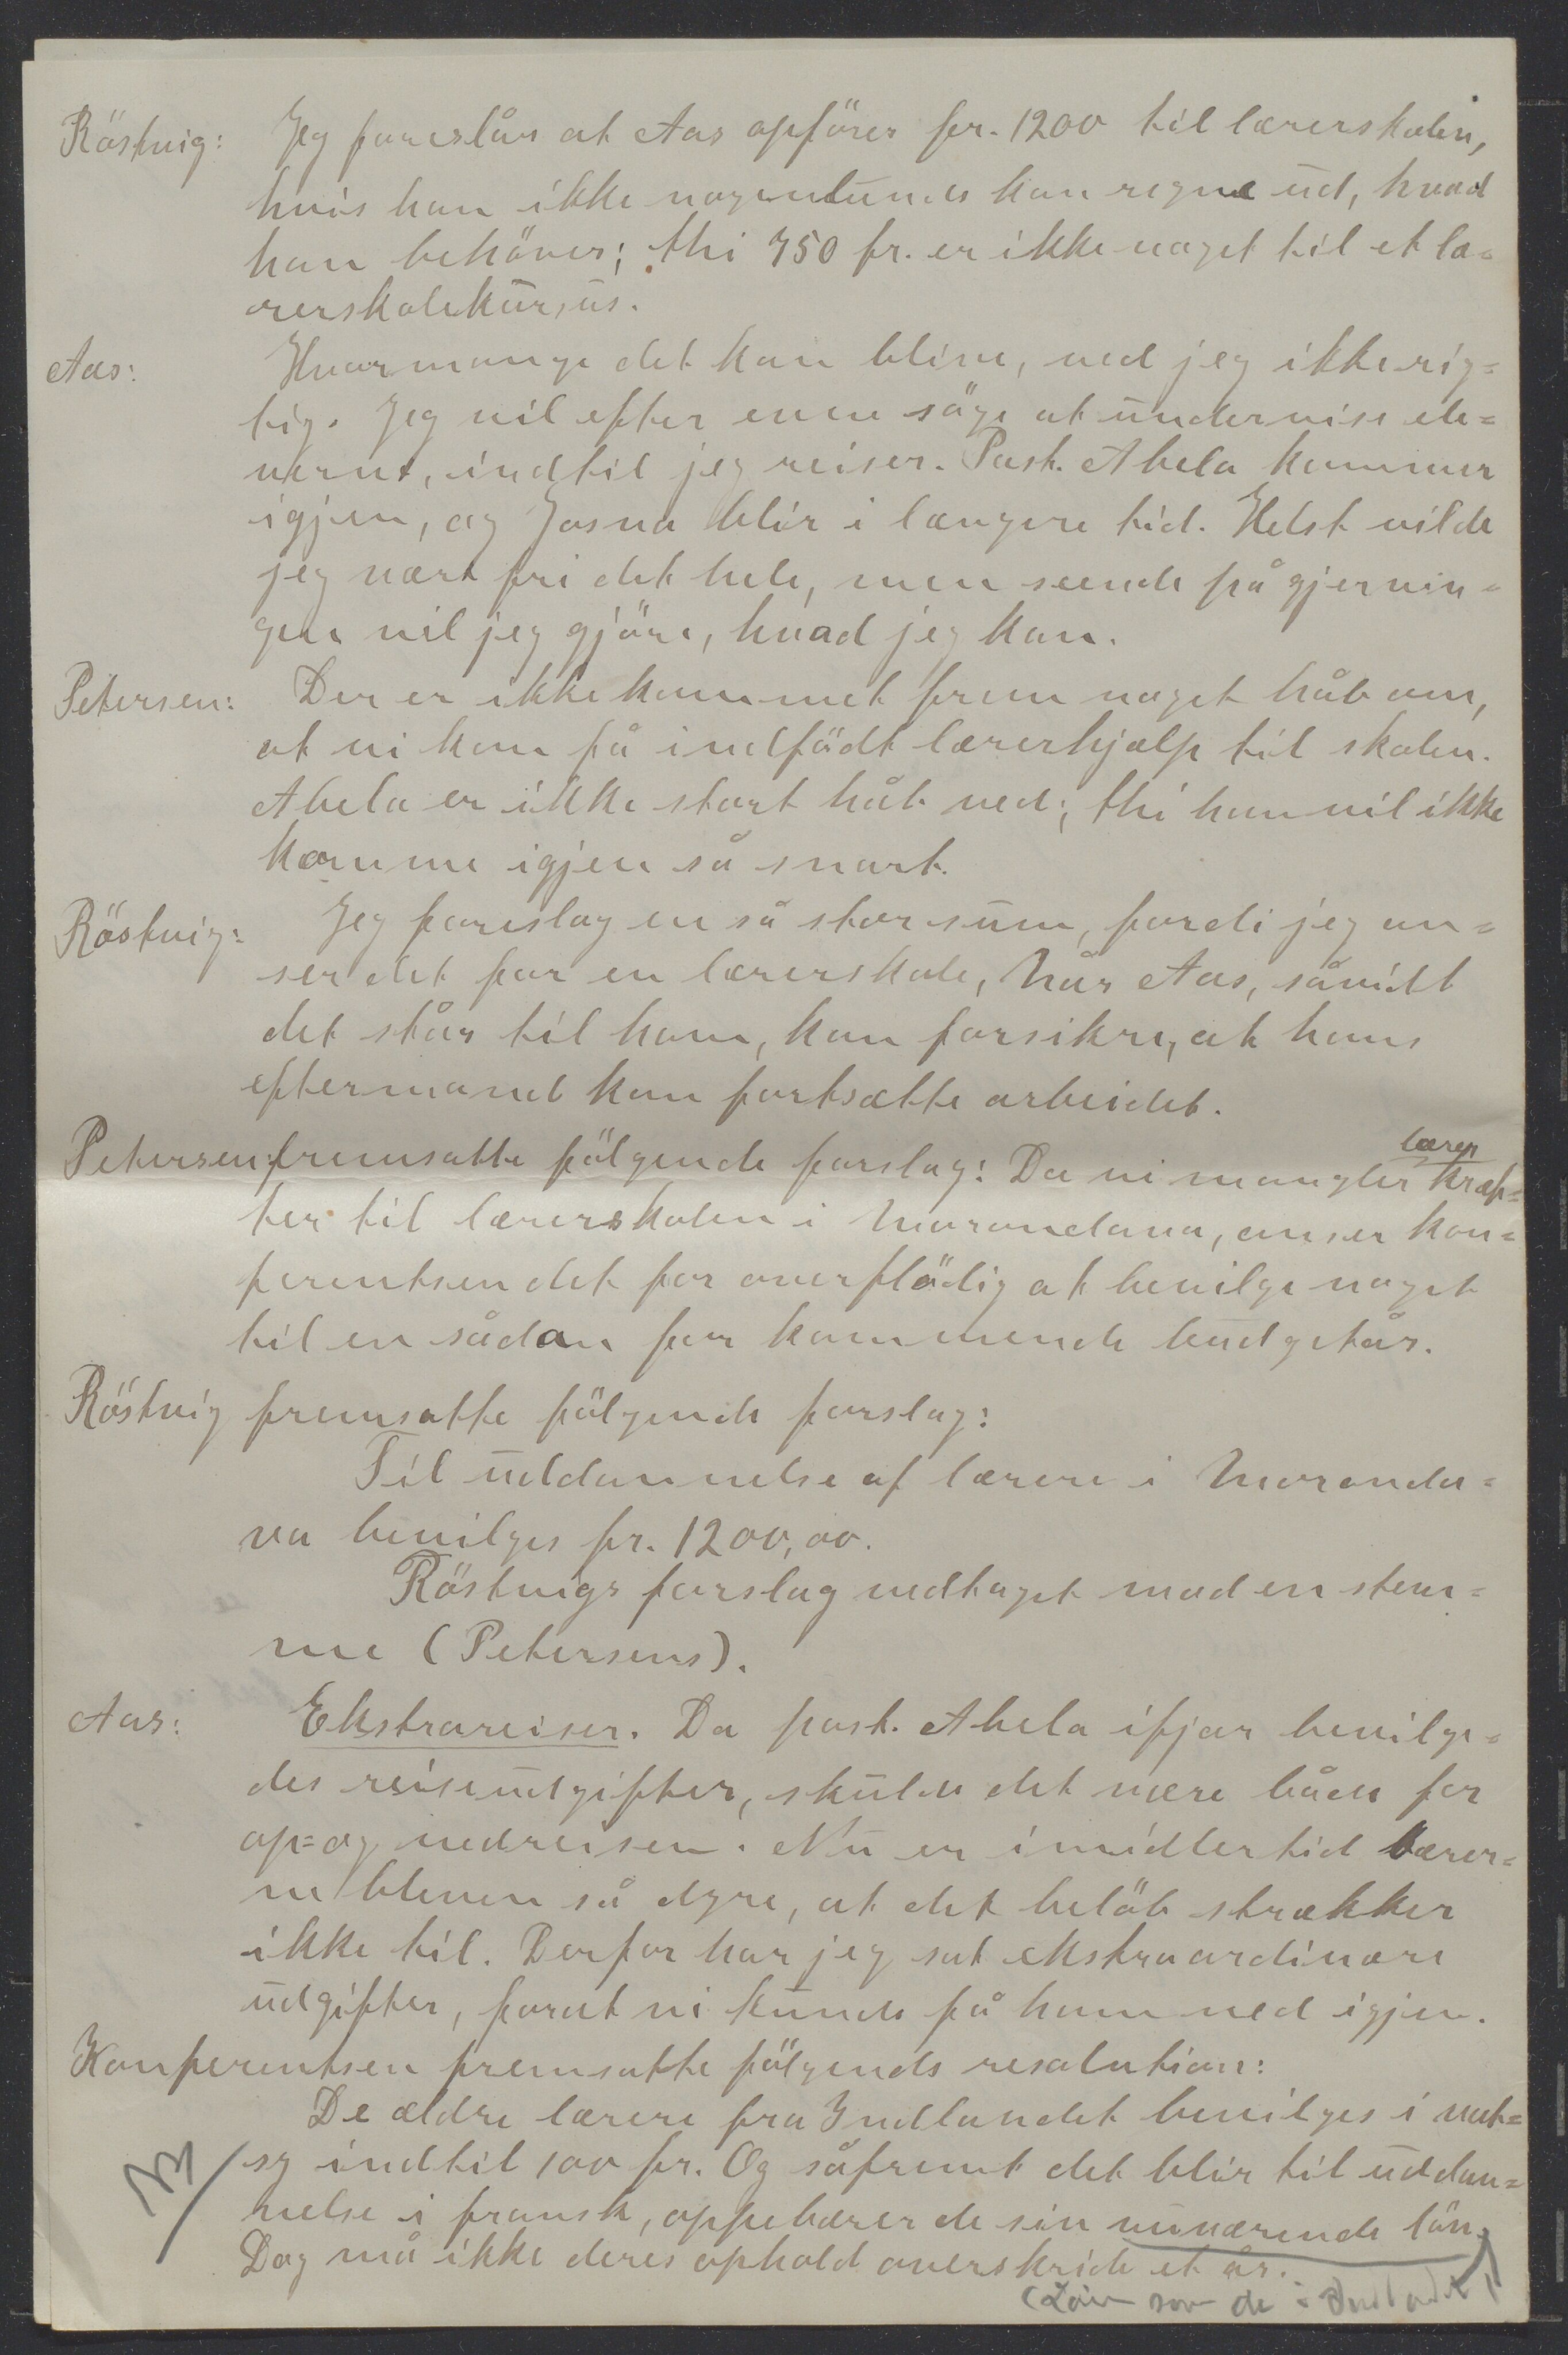 Röstvig: Jeg foreslår at Aas opförer fr. 1200 til lærerskolen,
hvis han ikke nogenlunde kan regne ud, hvad
han behöver; thi 750 fr. er ikke noget til et læ-
rerskolekursus.
Aas: Hvormange det kan blive, ved jeg ikke rig-
tig. Jeg vil efter evne söge at undervise ele-
verne, indtil jeg reiser. Past. Abela kommer
igjen, og Josva blir i længere tid. Helst vilde
jeg være fri det hele, men seende på gjernin-
gen vil jeg gjöre, hvad jeg kan.
Petersen: Der er ikke kommet frem noget håb om,
at vi kan få indfödt lærerhjælp til skolen.
Abela er ikke stort håb ved; thi han vil ikke
komme igjen så snart.
Röstvig: Jeg foreslog en så stor sum, fordi jeg an-
ser det for en lærerskole, når Aas, såvidt
det står til ham, kan forsikre, at hans
eftermand kan fortsætte arbeidet.
Petersen: fremsatte fölgende forslag: Da vi mangler lærer kræf-
ter til lærerskolen i Morondava, anser kon-
ferentsen det for overflödig at bevilge noget
til en sådan for kommende budgetår.
Röstvig fremsatte fölgende forslag:
Til uddannelse af lærere i Moronda-
va bevilges fr. 1200,00.
Röstvigs forslag vedtaget mod en stem-
me (Petersens).
Aas: Ekstrareiser. Da past. Abela ifjor bevilge-
des reiseudgifter, skulde det være både for
op- og nedreisen. Nu er imidlertid bærer-
ne bleven så dyre, at det belöb strækker
ikke til. Derfor har jeg sat ekstraordinære
udgifter, forat vi kunde få ham ned igjen.
Konferentsen fremsatte fölgende resolution:
De ældre lærere fra Indlandet bevilges i vat-
sy indtil 100 fr. Og såfremt det blir til uddan-
nelse i fransk, oppebærer de sin nuværende lön.
Dog må ikke deres ophold overskride et år.
(Lön som de i Indlandet)